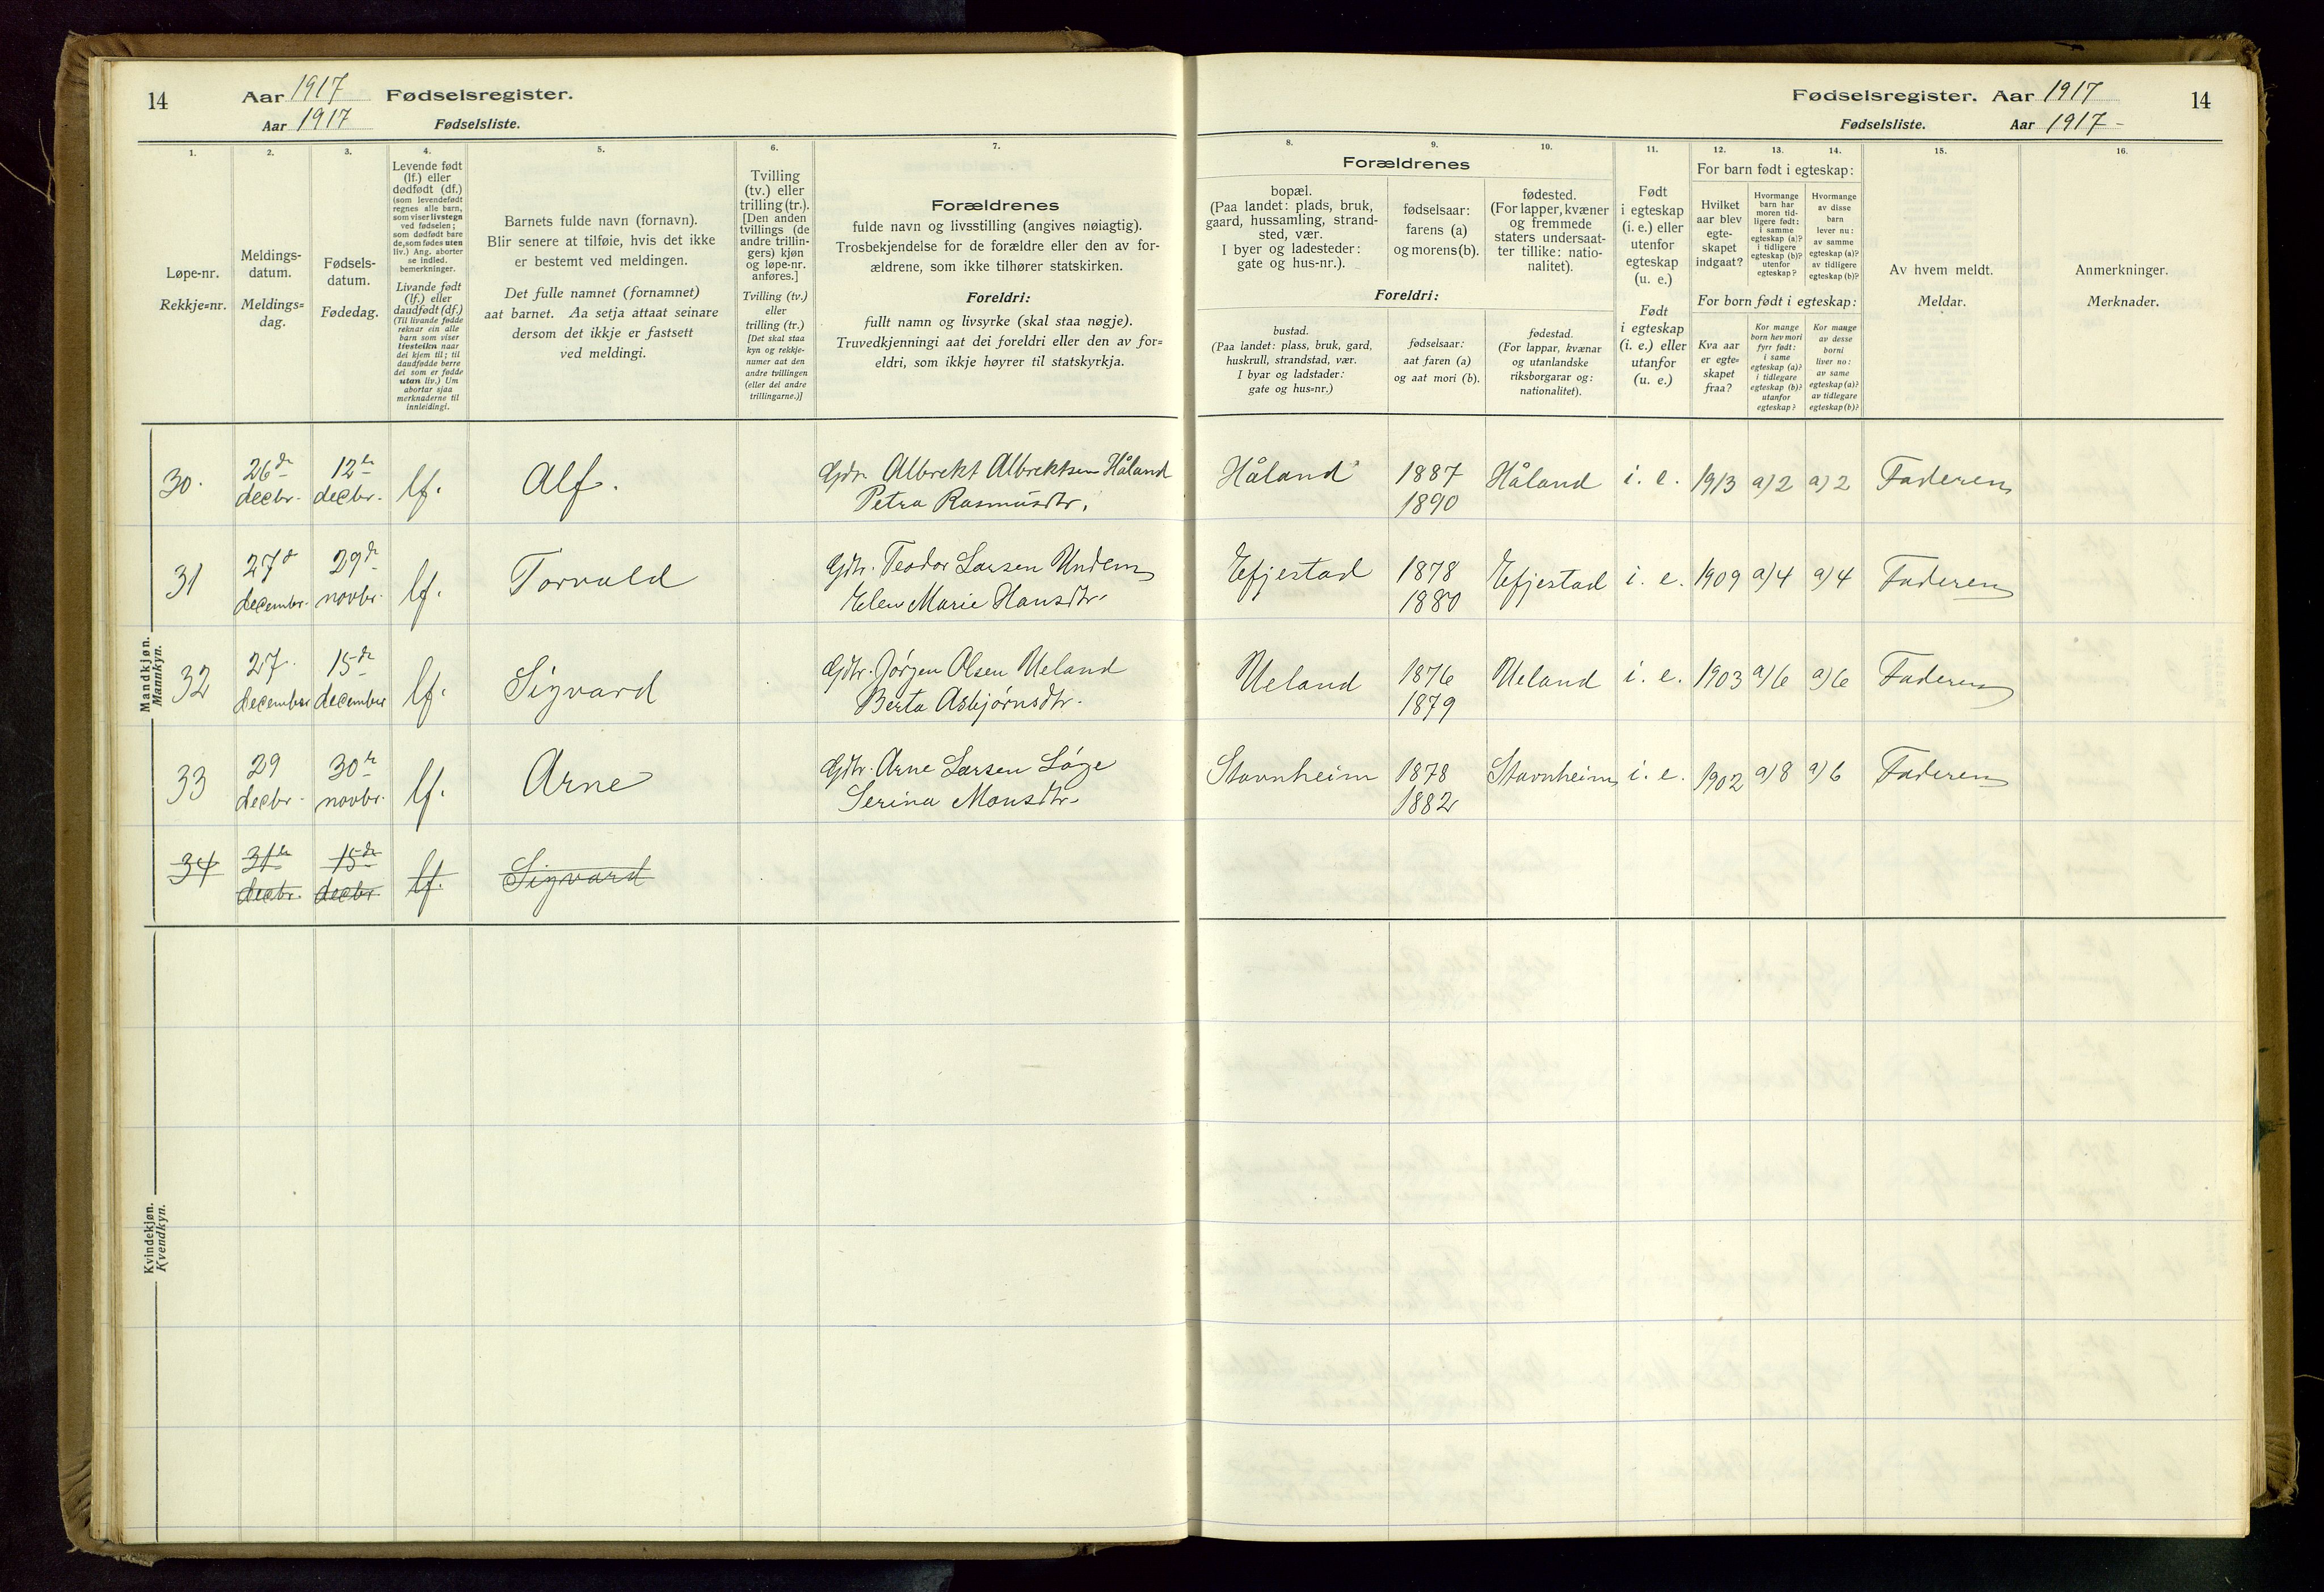 14
Aar 1917 Fødselsregister.
Aar 1917 Fødselsliste.
1.
Løpe-nr.
Rekkje=nr.
2.
Meldings-
datum.
Meldings=
dag.
3.
Fødsels-
datum.
Fødedag.
4.
Levende født
(lf.) eller
dødfødt (df.)
(som levendefødt
regnes alle barn,
som viser livstegn
ved fødselen;
som dødfødt bare
de, som fødes uten
liv.) Ang. aborter
se indled.
bemerkninger.
Livande født
(lf.) eller
daudfødt (df.)
(Til livande fødde
reknar ein alle
barn som viser
livsteikn naar
dei kjem til; til
daudfødde berre
dei som er fødde
utan liv.) Um
abortar sjaa
merknaderne til
innleidingi.
5.
Barnets fulde navn (fornavn).
Blir senere at tilføie, hvis det ikke
er bestemt ved meldingen.
Det fulle namnet (fornamnet)
aat barnet. Aa setja attaat seinare
dersom det ikkje er fastsett
ved meldingi.
6.
Tvilling
(tv.) eller
trilling (tr.).
[Den anden
tvillings (de
andre trillin-
gers) kjøn
og løpe-nr.
anføres.]
Tvilling (tv.)
eller
trilling (tr.)
[Det skal staa
kyn og rekkje-
numer aat den
andre tvillingen
(eller dei andre
trillingarne.)]
7.
Forældrenes
fulde navn og livsstilling (angives nøiagtig).
Trosbekjendelse for de forældre eller den av for-
ældrene, som ikke tilhører statskirken.
Foreldri:
fullt namn og livsyrke (skal staa nøgje).
Truvedkjenningi aat dei foreldri eller den av for=
eldri, som ikkje høyrer til statskyrkja.
Fødselsregister. Aar 1917 14
Fødselsliste. Aar 1917 -
Forældrenes
8.
bopæl.
(Paa landet: plads, bruk,
gaard, hussamling, strand-
sted, vær.
I byer og ladesteder:
gate og hus-nr.).
9.
fødselsaar:
farens (a)
og morens (b).
10.
fødested.
(For lapper, kvæner
og fremmede
staters undersaat-
ter tillike: natio-
nalitet).
Foreldri:
bustad.
(Paa landet: plass, bruk, gard,
huskrull, strandstad, vær.
I byar og ladstader:
gate og hus=nr.)
fødselsaar:
aat faren (a)
og aat mori (b).
fødestad.
(For lappar, kvænar
og utanlandske
riksborgarar og:
nationalitet).
11.
Født
i egteskap
(i. e.) eller
utenfor
egteskap
(u. e.)
Født
i egteskap
(i. e.) eller
utanfor
(u. e.)
For barn født i egteskap:
12.
Hvilket
aar blev
egte-
skapet
indgaat?
13.
Hvormange
barn har
moren tid-
ligere født:
i samme
egteskap (a)?
i tidligere
egteskap (b)?
utenfor
egteskap?
14.
Hvormange
av disse
barn
lever nu:
av samme
egteskap (a)?
av tidligere
egteskap (b)?
For born født i egteskap:
Kva aar
er egte=
skapet
fraa?
Kor mange
born hev mori
fyrr født:
i same
egteskap (a)?
i tidlegare
egteskap (b)?
utanfor
egteskap?
Kor mange
av desse
borni
liver no:
av same
egteskap (a)?
av tidlegare
egteskap (b)?
15.
Av hvem meldt.
Meldar.
16.
Anmerkninger.
Merknader.
Mandkjøn.
Mannkyn.
30. 26de decbr. 12te decbr. lf. Alf. Gdr. Albrekt Albrektsen Håland Håland 1887 Håland i. e. 1913 a) 2 a) 2 Faderen
Petra Rasmusdtr. 1890
31 27de decembr. 29de novbr. lf. Torvald Gdr. Teodor Larsen Undem Efjestad 1878 Efjestad i. e. 1909 a) 4 a) 4 Faderen
Elen Marie Hansdtr. 1880
32 27. december 15de december lf. Sigvard Gdr. Jørgen Olsen Ueland Ueland 1876 Ueland i. e. 1903 a) 6 a) 6 Faderen
Berta Asbjørnsdtr. 1879
33 29 decbr. 30te novbr. lf. Arne Gdr. Arne Larsen Løge Stavnheim 1878 Stavnheim i. e. 1902 a) 8 a) 6 Faderen
Serina Monsdtr. 1882
34 31te decbr. 15de decbr lf. Sigvard
Kvindekjøn.
Kvendkyn.